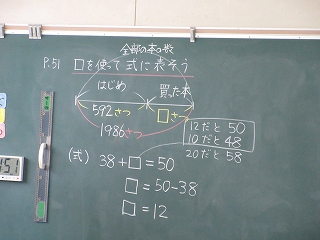 全部の本の数
P.51 □を使って式に表そう
はじめ 買った本
592さつ □さつ
1986さつ
12だと 50
10だと 48
20だと 58
(式) 38+□=50
□=50-38
□=12